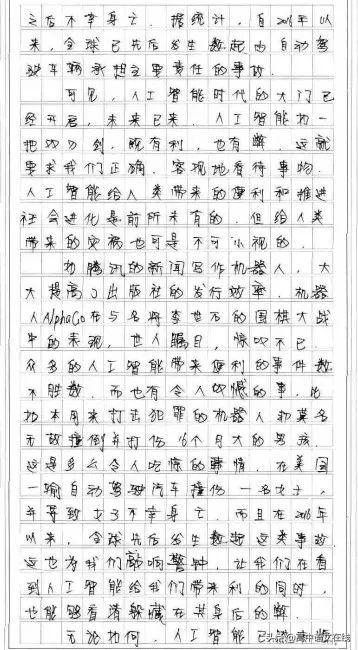 之后不幸身亡．据统计，自2016年以
来，全球已先后发生数起由自动驾
驶车辆承担主要责任的事故．
可见，人工智能时代的大门已
经开启，未来已来．人工智能如一
把双刃剑，既有利，也有弊．这就
要求我们正确、客观地看待事物．
人工智能给人类带来的便利和推进
社会进化是前所未有的．但给人类
带来的灾祸也可是不可小视的．
如腾讯的新闻写作机器人，大
大提高了出版社的发行效率．机器
人AlphaGo在与名将李世石的围棋大战
中的表现，世人瞩目，惊叹不已．
众多的人工智能带来便利的事件数
不胜数．而也有令人叹憾的事，比
如本用来打击犯罪的机器人却莫名
无故撞倒并打伤16个月大的男孩．
这是多么令人吃惊的事情．在美国
一辆自动驾驶汽车撞伤一名女士，
并导致女子不幸身亡．而且在2016年
以来，全球先后发生数起这类事故
这也为我们敲响警钟，让我们在看
到人工智能给我们带来利的同时，
也能够看清躲藏在其身后的弊．
无论如何，人工智能已
头条@高中语文在线